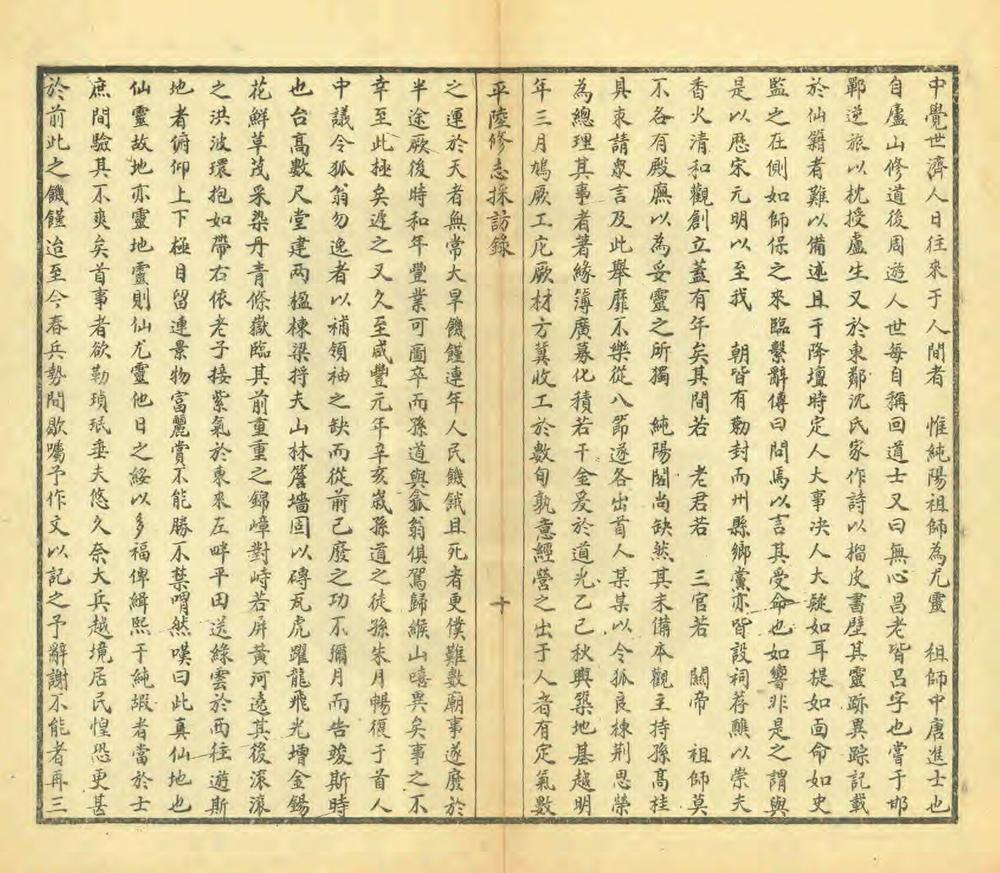 中覺世濟人日往來于人間者　惟純陽祖師為尤靈　祖師中唐進士也
自廬山修道後周遊人世每自稱回道士又曰無心昌老皆呂字也嘗于邯
鄲逆旅以枕授盧生又於東鄰沈氏家作詩以榴皮書壁其靈跡異踪記載
於仙籍者難以備述且于降壇時定人大事决人大疑如耳提如面命如史
監之在側如師保之來臨繫辭傳曰問焉以言其受命也如響非是之謂與
是以歷宋元明以至我　朝皆有勅封而州縣鄉黨亦皆設祠荐醮以崇夫
香火清和觀創立蓋有年矣其間若　老君若　三官若　關帝　祖師莫
不各有殿廡以為妥靈之所獨　純陽閣尚缺然其未備本觀主持孫高桂
具衷請衆言及此舉靡不樂從八節遂各出首人某某以令狐良棟荆思榮
為總理其事者著緣簿廣募化積若干金爰於道光乙巳秋興築地基越明
年三月鳩厥工庀厥材方冀收工於數旬孰意經營之出于人者有定氣數
平陸修志採訪錄
十
之運於天者無常大旱饑饉連年人民饑餓且死者更僕難數廟事遂廢於
半途厥後時和年豐業可圖卒而孫道與龕翁俱駕歸緱山嘻異矣事之不
幸至此極矣遲之又久至咸豐元年辛亥歲孫道之徒孫朱月暢復于首人
中議令狐翁勿逸者以補領袖之缺而從前已廢之功不彌月而告竣斯時
也台高數尺堂建兩楹棟梁捋夫山林簷墻固以磚瓦虎躍龍飛光增金錫
花鮮草茂采染丹青條嶽臨其前重重之錦嶂對峙若屏黃河遶其後滾滾
之洪波環抱如帶右依老子接紫氣於東來左畔平田送綠雲於西往遊斯
地者俯仰上下極目留連景物富麗賞不能勝不禁喟然嘆曰此真仙地也
仙靈故地亦靈地靈則仙尤靈他日之綏以多福俾緝熙于純嘏者當於士
庶間驗其不爽矣首事者欲勒瑣珉垂夫悠久奈大兵越境居民惶恐更甚
於前此之饑饉迨至今春兵勢間歇囑予作文以記之予辭謝不能者再三